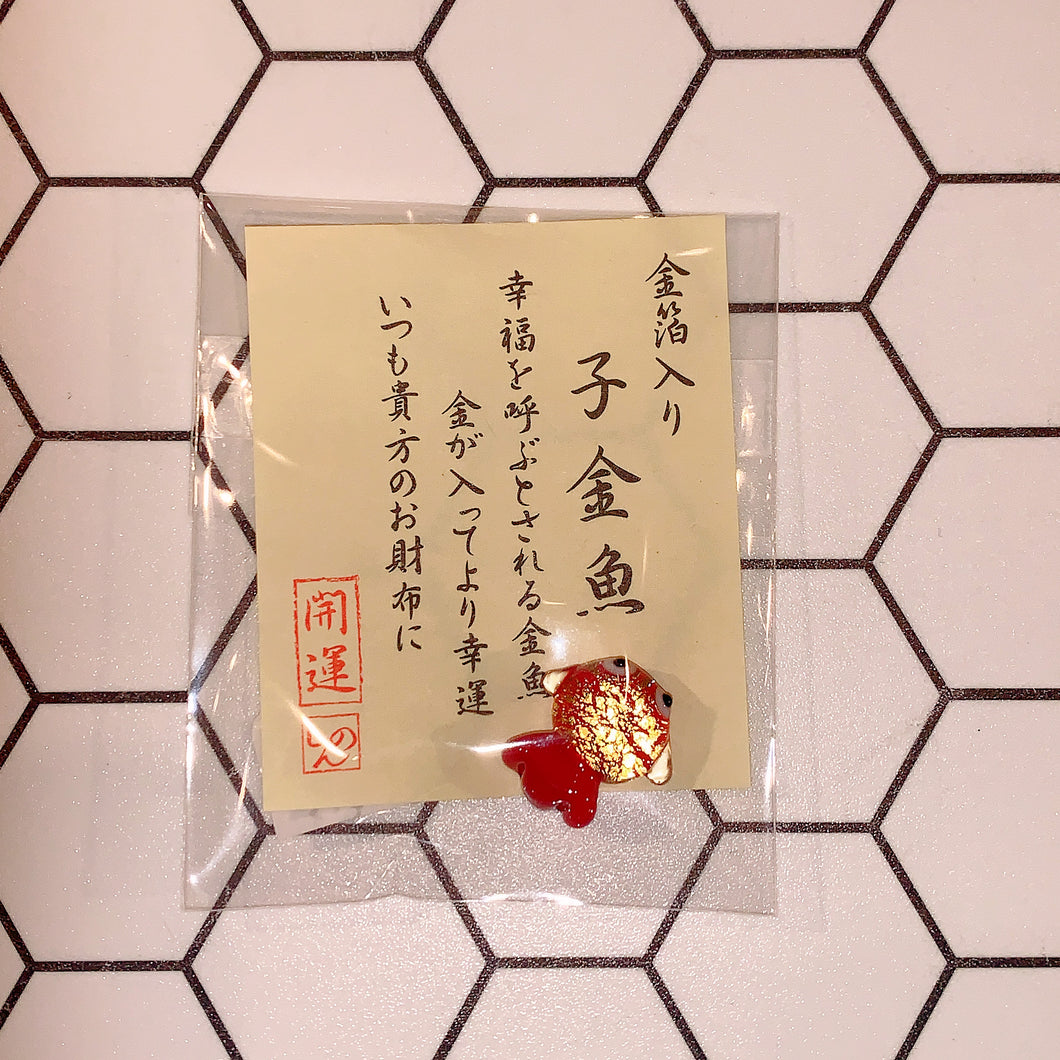 金箔入り
子金魚
幸福を呼ぶとされる金魚
金が入ってより幸運
いつも貴方のお財布に
開運